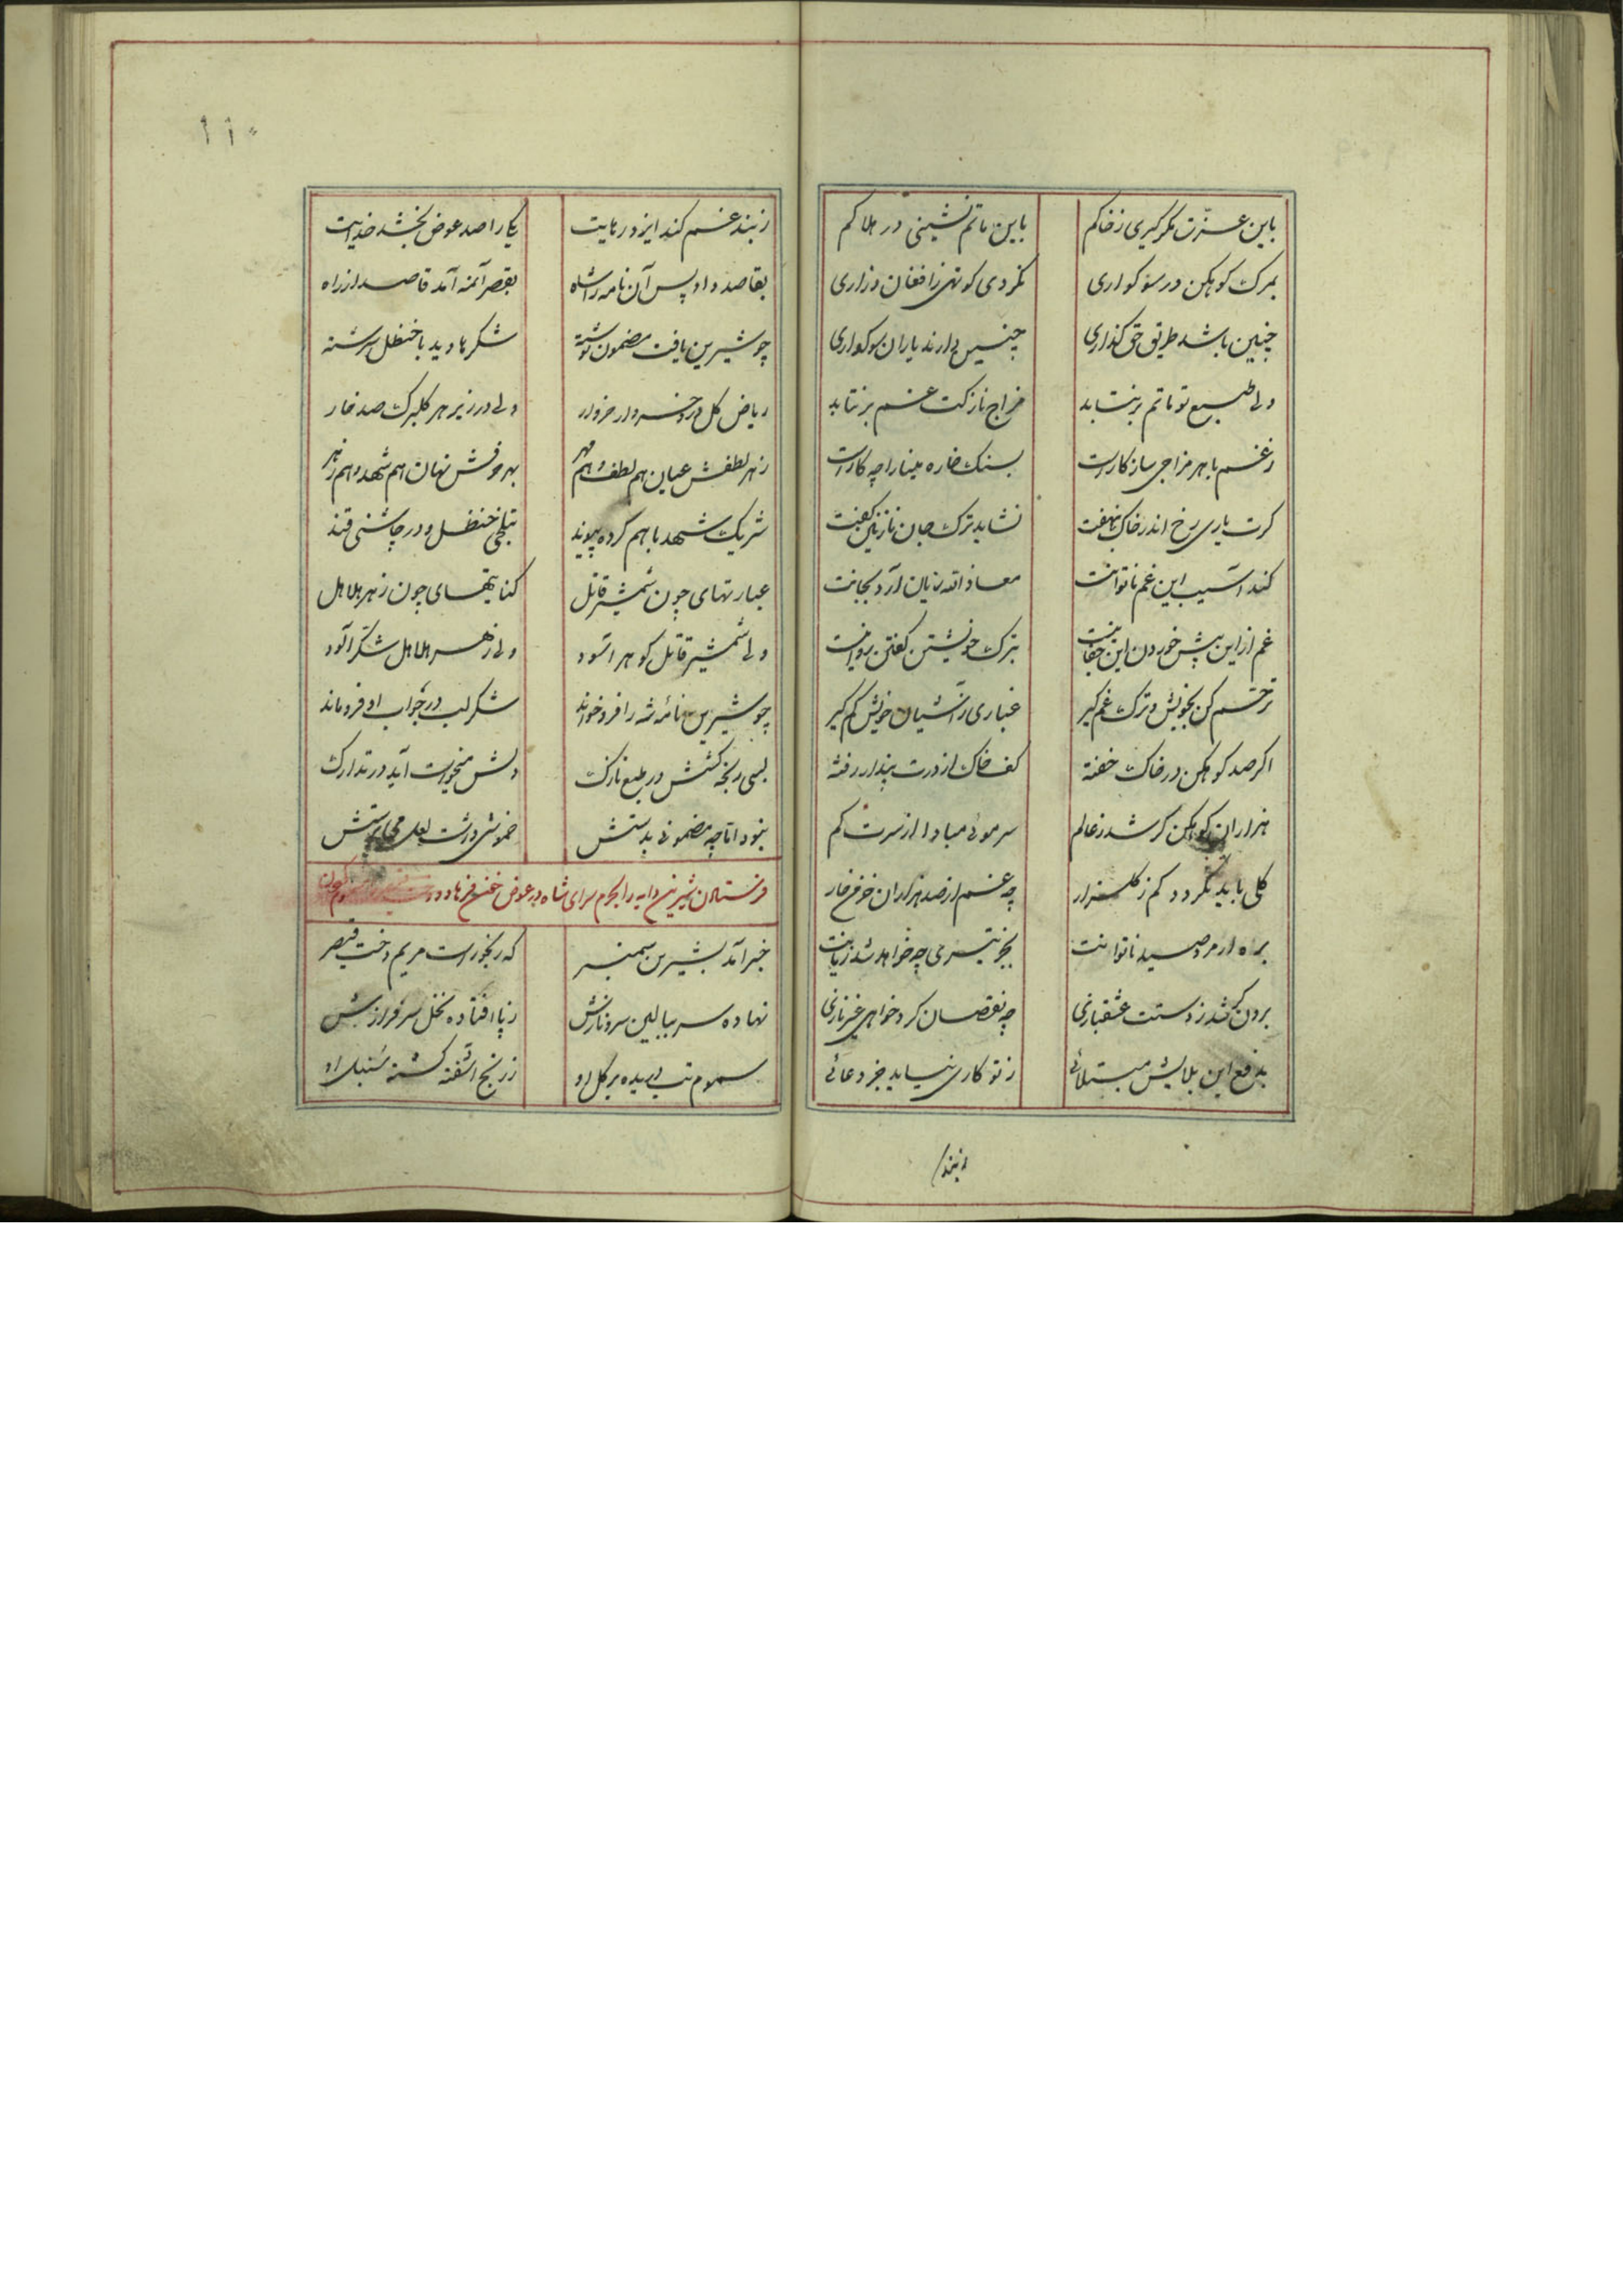 باین عزّت مگر گیری ز خاکم باین ماتم نشینی در هلاکم
بمرک کوهکن در سوکواری نکردی کوتهی ز افغان و زاری
چنین باشد طریق حق گذاری چنین دارند یاران سوکواری
ولی طبع تو ماتم برنتابد مزاج نازکت غم برنتابد
نه غم با هر مزاجی سازکار است بسنک خاره مینا را چه کار است
کرت یاری رخ اندر خاک بنهفت نشاید ترک جان نازنین گفت
کند آسیب این غم ناتوانت معاذ الله زیان آرد بجانت
غم از این بیش خوردن این جفا نیست بترک خویشتن گفتن روا نیست
ترحّم کن بخویش و ترک غم کیر غباری ز آشیان خویش کم کیر
اکر صد کوهکن در خاک خفته کف خاک از درت پندار رفته
هزاران کوهکن کر شد ز عالم سر موئی مبادا از سرت کم
کلی باید نکردد کم ز کلزار چه غم از صد هزاران خرمن خار
بره ار مرد صید ناتوانت بجز تیری چه خواهد شد زیانت
برون شد ز دستت عشقبازی چه نقصان کرد خواهی غیر نازی
بدفع این بلایش مبتلائی ز تو کاری نیاید جز دعائی
ز بند
۱۱۰
ز بند غم کند ایزد رهایت یکی را صد عوض بخشد خدایت
بقاصد داد پس آن نامه را شاه بقصر آمنه آمد قاصد از راه
چو شیرین یافت مضمون نوشته شکرها دید با حنظل سرشته
ریاض کل در خسرو ار خروار ولی در زیر هر کلبرک صد خار
ز هر لطفش عیان هم لطف و هم قهر بهر حرفش نهان هم شهد و هم زهر
شریک شهد با هم کرده پیوند بتلخی حنظل و در چاشنی قند
عبارتهای چون شمشیر قاتل کنایتهای چون زهر هلاهل
ولی شمشیر قاتل کوهر آسود ولی زهر هلاهل شکّر آلود
چو شیرین نامه شه را فرو خواند شکر لب در جواب او فرو ماند
بسی رنجه کشش در طبع نازک دلش میخواست آید در تدارک
نبود اما چه مضمونی بدستش خموشی داشت لعل می پرستش
فرستادن شیرین دایه را بحرم سرای شاه در عوض خسرو فرهاد
خبر آمد بشیرین سمنبر که رنجور است مریم دخت قیصر
نهاده سر ببالین سرو نازش ز پا افتاده نخل سرفرازش
سموم تب دمیده بر کل او ز رنج آشفته کشته سنبل او